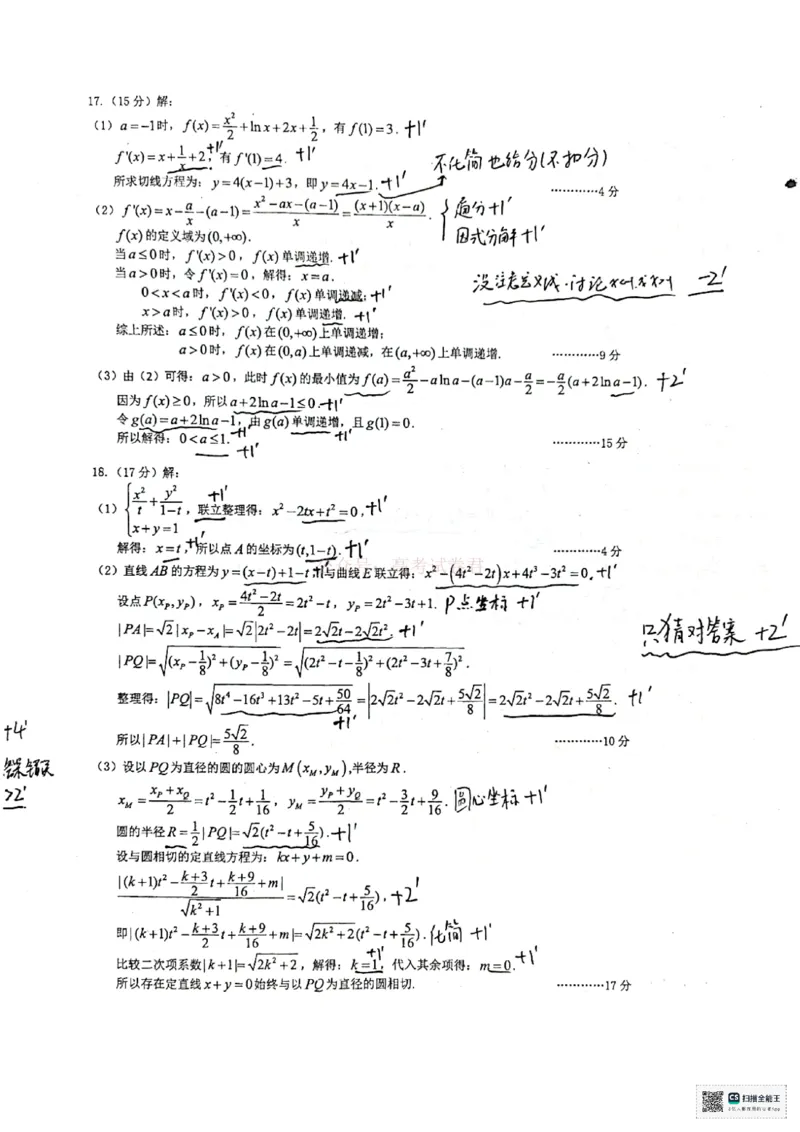 17.（15分）解：
（1）a=-1时，f(x)=x²/2+lnx+2x+1/2，有f(1)=3. +1'
f'(x)=x+1/x+2，+1' 有f'(1)=4. +1'
不化简也给分(不扣分)
所求切线方程为：y=4(x-1)+3，即y=4x-1. +1' …………4分
（2）f'(x)=x-a/x-(a-1)=(x²-ax-(a-1)x... 
f(x)的定义域为(0,+∞).
因式分解+1'
当a≤0时，f'(x)>0，f(x)单调递增. +1'
当a>0时，令f'(x)=0，解得：x=a.
-2'
0<x<a时，f'(x)<0，f(x)单调递减; +1'
x>a时，f'(x)>0，f(x)单调递增. +1'
综上所述：a≤0时，f(x)在(0,+∞)上单调递增；
a>0时，f(x)在(0,a)上单调递减，在(a,+∞)上单调递增. …………9分
（3）由（2）可得：a>0，此时f(x)的最小值为f(a)=a²/2-alna-(a-1)a-a/2=-a/2(a+2lna-1). +2'
因为f(x)≥0，所以a+2lna-1≤0. +1'
令g(a)=a+2lna-1，+1' 由g(a)单调递增，且g(1)=0. +1'
所以解得：0<a≤1. +1' …………15分
18.（17分）解：
（1）{x²/t+y²/(1-t) x+y=1，+1' 联立整理得：x²-2tx+t²=0，+1'
解得：x=t，+1' 所以点A的坐标为(t,1-t). +1' …………4分
（2）直线AB的方程为y=(x-t)+1-t +1' 与曲线E联立得：x²-(4t²-2t)x+4t³-3t²=0. +1'
设点P(x_P,y_P)，x_P=(4t²-2t)/2=2t²-t，y_P=2t²-3t+1. P点坐标 +1'
|PA|=√2|x_P-x_A|=√2|2t²-2t|=2√2t-2√2t²，+1'
只猜对答案 +2'
|PQ|=√((x_P-1/8)²+(y_P-1/8)²)=√((2t²-t-1/8)²+(2t²-3t+7/8)².
整理得：|PQ|=√(8t⁴-16t³+13t²-5t+50/64)=|2√2t²-2√2t+5√2/8|=2√2t²-2√2t+5√2/8. +1'
+1'
所以|PA|+|PQ|=5√2/8. …………10分
+4'
>2'
（3）设以PQ为直径的圆的圆心为M(x_M,y_M),半径为R.
x_M=(x_P+x_Q)/2=t²-1/2t+1/16，y_M=(y_P+y_Q)/2=t²-3/2t+9/16. 圆心坐标+1'
圆的半径R=1/2|PQ|=√2(t²-t+5/16). +1'
设与圆相切的定直线方程为：kx+y+m=0.
|(k+1)t²-(k+3)/2t+(k+9)/16+m|/√(k²+1)=√2(t²-t+5/16)，+2'
即|(k+1)t²-(k+3)/2t+(k+9)/16+m|=√(2k²+2)(t²-t+5/16). 化简 +1'
比较二次项系数|k+1|=√(2k²+2)，解得：k=1，+1' 代入其余项得：m=0. +1'
所以存在定直线x+y=0始终与以PQ为直径的圆相切. …………17分
CS 扫描全能王